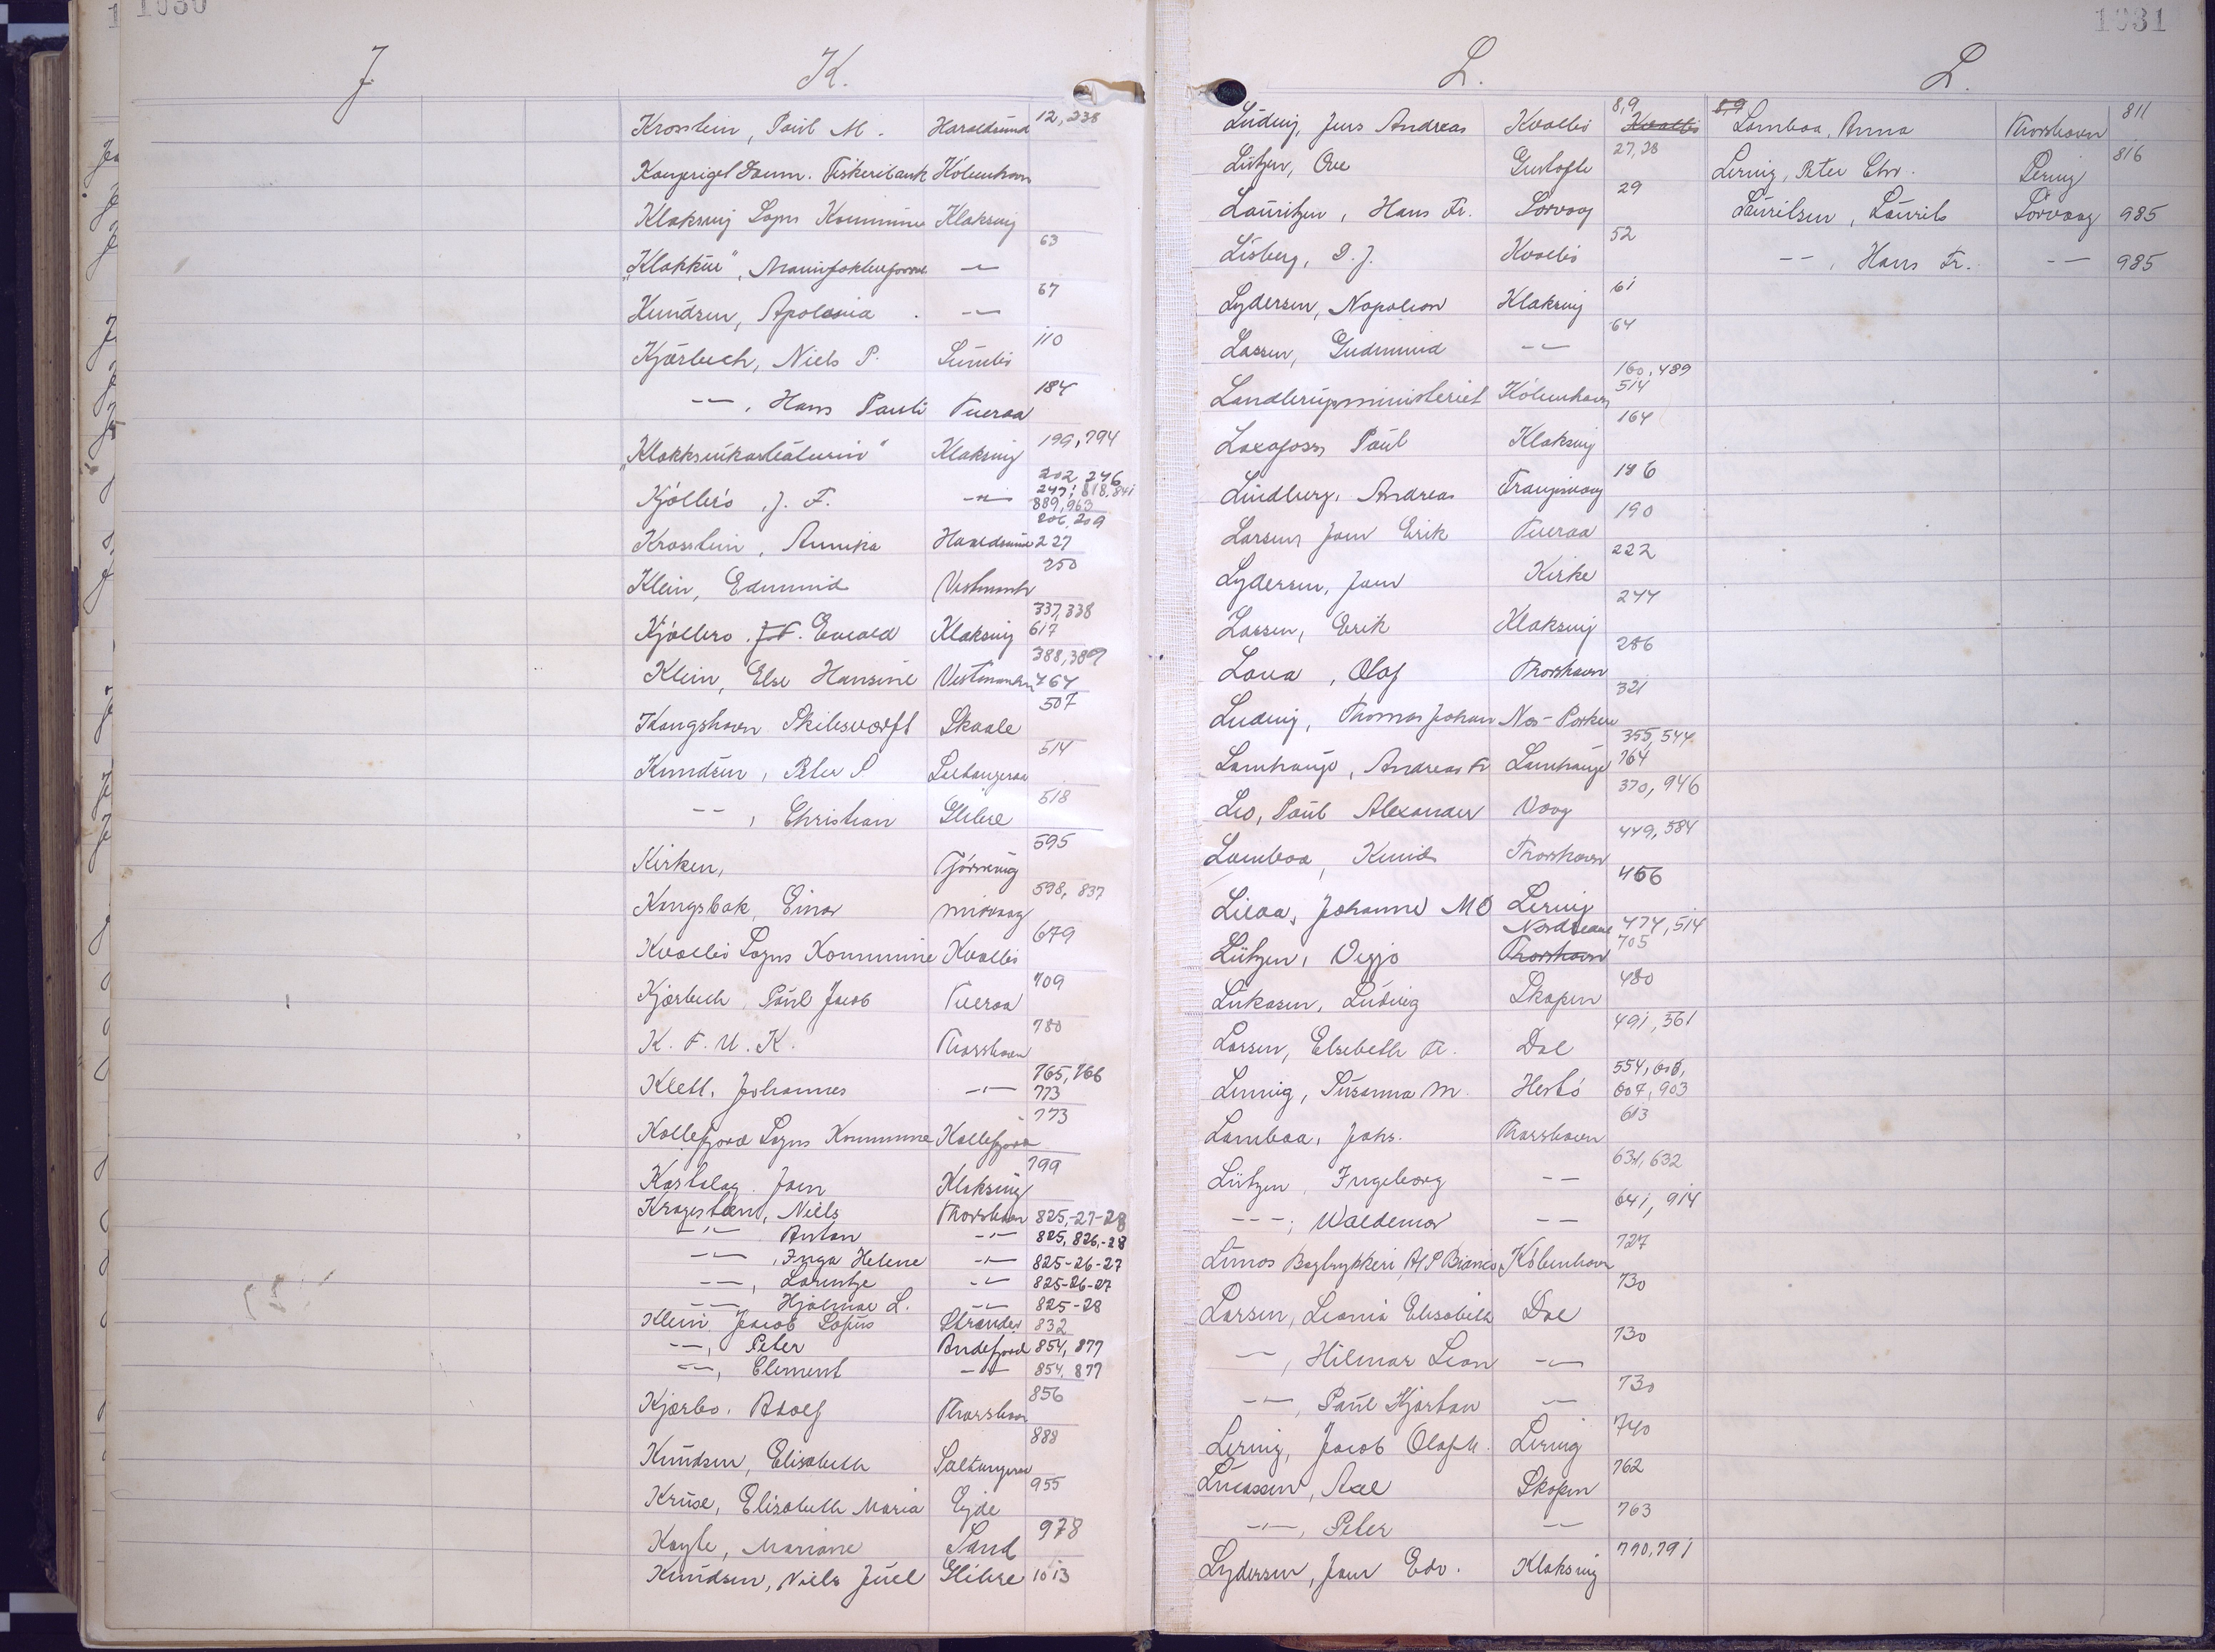 1030
J
K.
Krosstein, Poul M. Haraldsund 12, 238
Kongeriget Danm. Fiskeribank København
Klaksvig Sogns Kommune Klaksvig
"Klakkur", 63
Knudsen, Apolonia -"- 67
Kjærbech, Niels P. Sumbø 110
-"-, Hans Pauli Tveraa 184
Klaksvig 199, 794
Kjølbro, J. F. -"- 202, 246
247, 818, 841
889, 963
206, 209
Krosstein, Annika Haraldsund 227
Klein, Edmund Vestmanh 250
Kjølbro, J.F. Evald Klaksvig 337, 338
617
Klein, Else Hansine Vestmanhn 388, 389
464
Kongshavn Skibsværft Skaale 507
Knudsen, Peter S Saltangeraa 514
-"-, Christian Glibre 518
Kirken, Tjørnevig 595
Kongsbak, Einar Midvaag 598, 837
Kvalbø Sogns Kommune Kvalbø 679
Kjærbech, Paul Jacob Tveraa 709
K. F. U. K. Thorshavn 780
Klett, Johannes -"- 765, 766
773
Kollefjord Sogns Kommune Kollefjord 773
Kastalag, Joen Klaksvig 799
Kragesteen, Niels Thorshavn 825,-27-28
-"- Anton -"- 825, 826,-28
-"-, Inga Helene -"- 825-26-27
-"-, -"- 825-26-27
-"- Hjalmar L. -"- 825-28
Klein, Jacob Sofus Strander 832
-"-, Peter Andefjord 854, 877
-"-, Clement -"- 854, 877
Kjærbo, Adolf Thorshavn 856
Knudsen, Elisabeth Saltangeraa 888
Kruse, Elisabeth Maria Ejde 955
Mariane Sand 978
Knudsen, Niels Juel Glibre 1013
1031
L.
Ludvig, Jens Andreas Kvalbø 8,9 Kvalbø
Lützen, Ove 27,28
Lauritzen, Hans Fr. Sørvaag 29
Lisberg, D. J. Kvalbø 52
Lydersen, Napoleon Klaksvig 61
Lassen, Gudmund -"- 64
Landbrugsministeriet København 160, 489
514
Laxafoss, Paul Klaksvig 164
Lindberg, Andreas Trangisvaag 186
Larsen, Joen Erik Tveraa 190
Lydersen, Joen Kirke 222
Lassen, Erik Klaksvig 244
Olaf Thorshavn 286
Ludvig, Thomas Johan Nes-Porkere 321
Lamhauge, Andreas Fr Lamhauge 355, 544
764
Leo, Paul Alexander Vaag 370, 946
Lamboa, Knud Thorshavn 449, 584
Johanne M O Lervig 466
Lützen, Viggo Nordskaale Thorshavn 474, 514
705
Lukasen, Ludvig Skopen 480
Larsen, Elsebeth A. Dal 491, 561
Susanna M. Hestø 554, 606,
607, 903
Lamboa, Johs. Thorshavn 613
Lützen, Ingeborg -"- 631, 632
---, Waldemar -"- 641, 914
Limos Bogtrykkeri, København 727
Larsen, Leonia Elisabeth Dal 730
-"-, Hilmar Leon -"- 730
-"-, Paul Kjartan -"- 730
Lervig, Jacob Olaf M. Lervig 740
Lucassen, Axel Skopen 762
-"-, Peter -"- 763
Lydersen, Joen Edv. Klaksvig 790, 791
L.
8,9 Lamboa, Anna Thorshavn 811
Lervig, Peter Chr. Lervig 816
Lauritsen, Laurits Sørvaag 985
-"-, Hans Fr. -"- 985